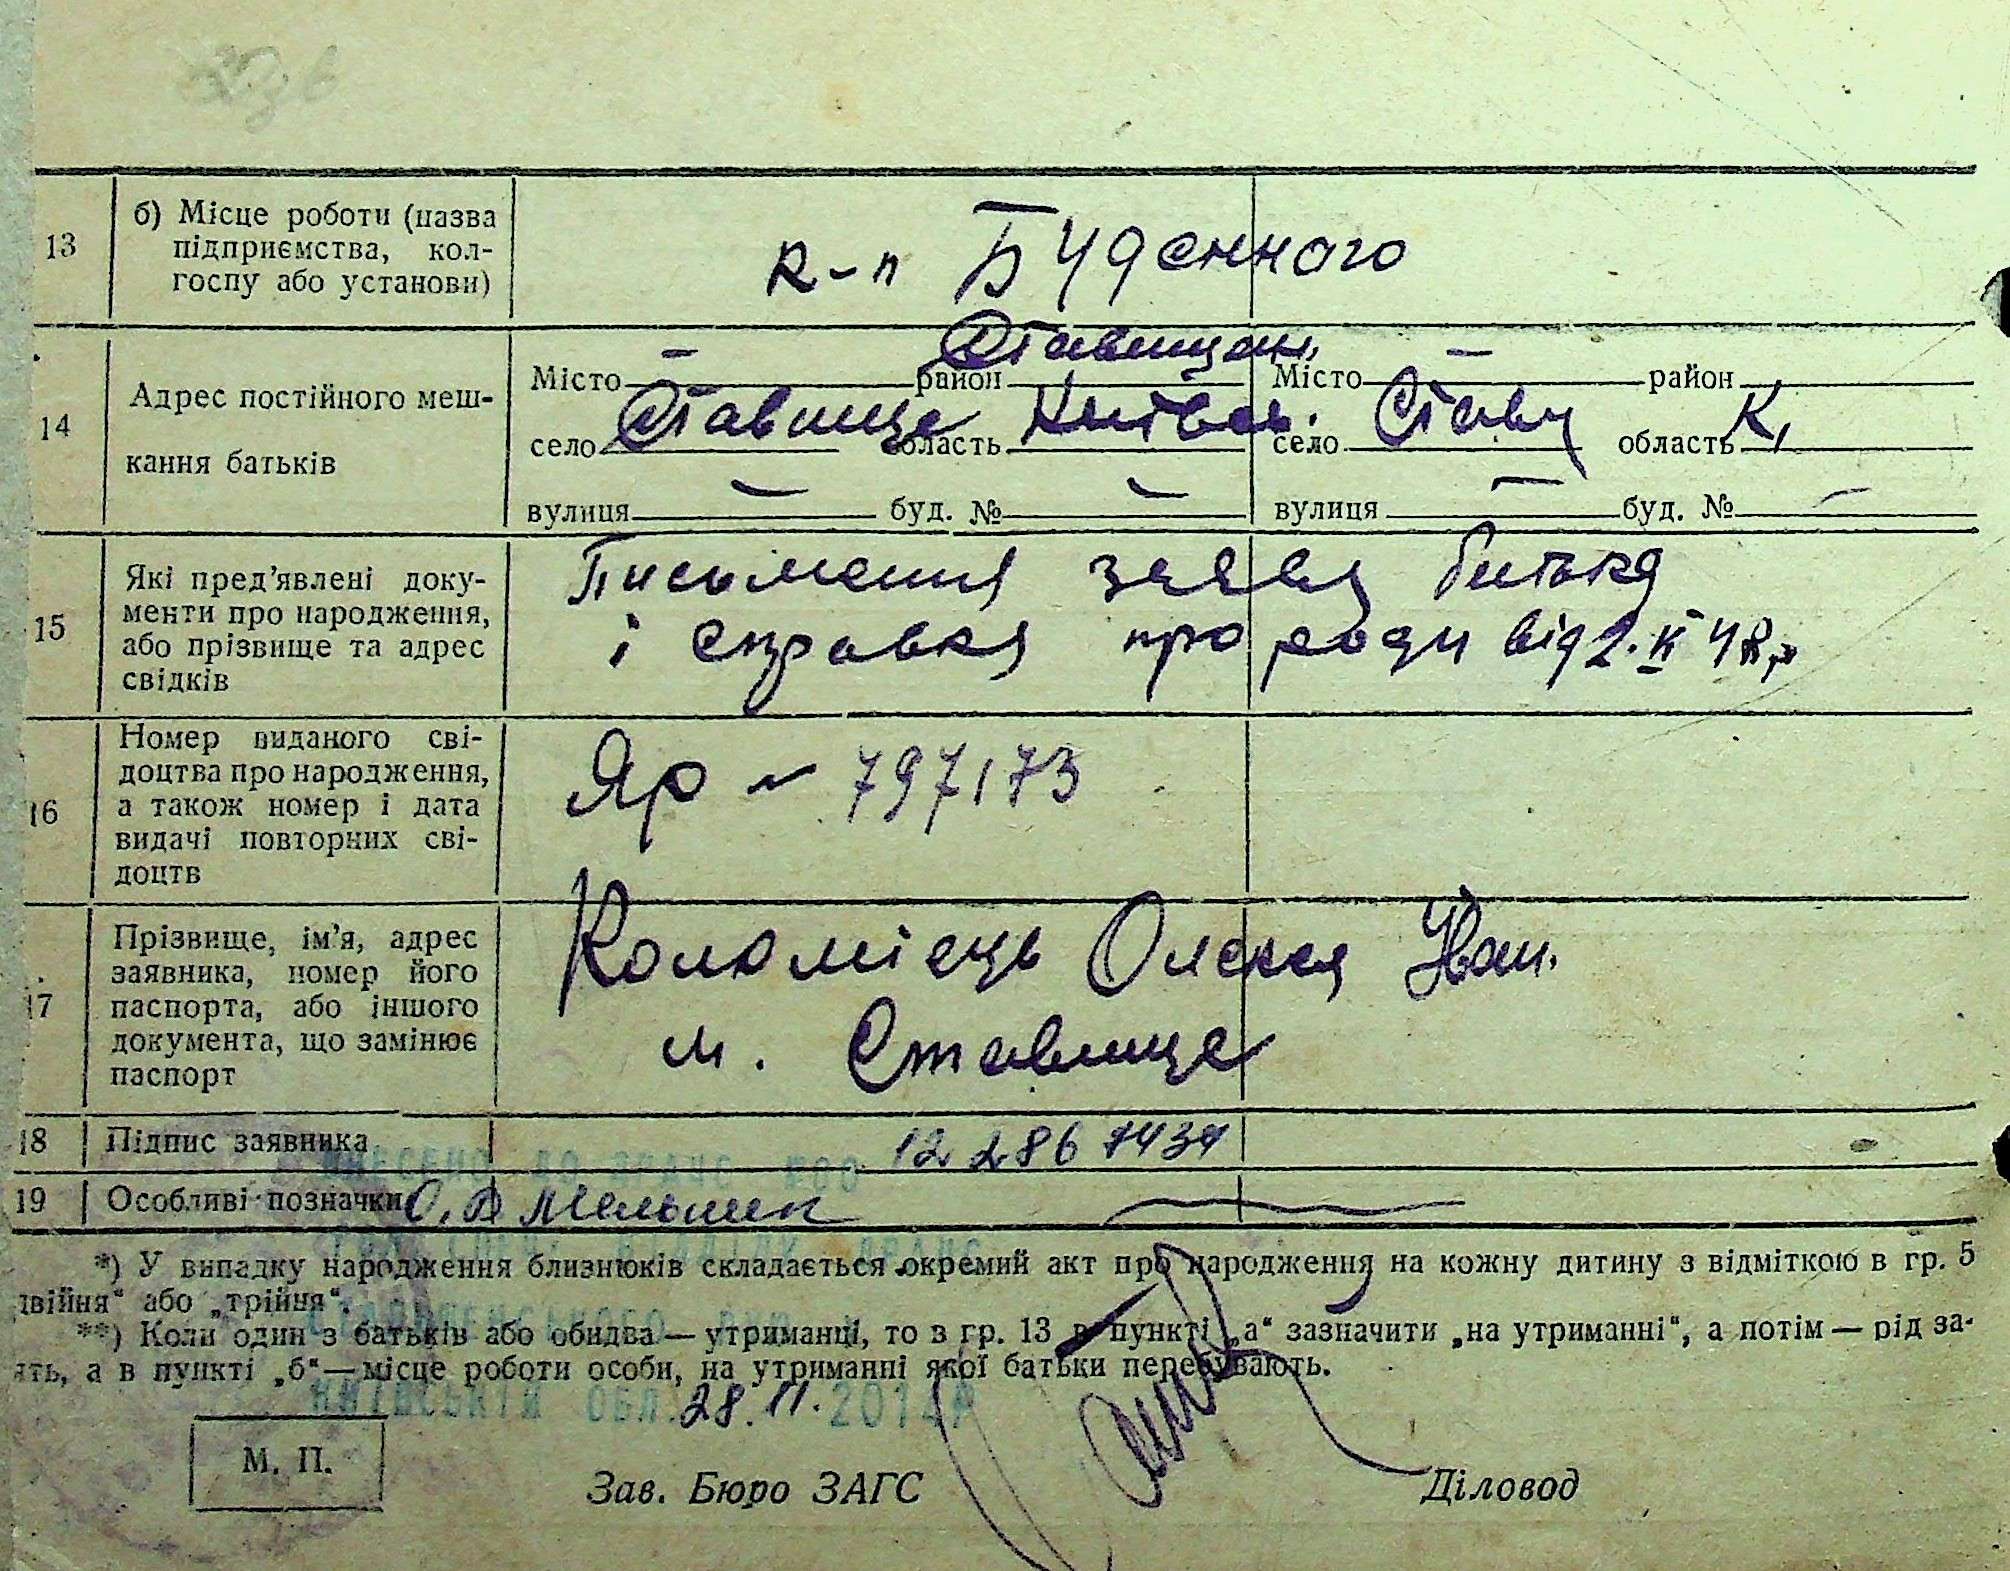 13
б) Місце роботи (назва
підприємства, кол-
госпу або установи)
к-п Буденного
14
Адрес постійного меш-
кання батьків
Ставищан.
Місто — район Місто — район
село Ставище область Київськ. село Стави область К,
вулиця — буд. № — вулиця — буд. № —
15
Які пред’явлені доку-
менти про народження,
або прізвище та адрес
свідків
Письмення заява батька
і справка про роди від 2.
16
Номер виданого сві-
доцтва про народження,
а також номер і дата
видачі повторних сві-
доцтв
Яр ~ 797173
17
Прізвище, ім’я, адрес
заявника, номер його
паспорта, або іншого
документа, що замінює
паспорт
Коломієць Олекса Іван.
м. Ставище
18 Підпис заявника
12 286 7434
19 Особливі позначки О. В Мельник
*) У випадку народження близнюків складається окремий акт про народження на кожну дитину з відміткою в гр. 5
двійня“ або „трійня“.
**) Коли один з батьків або обидва — утриманці, то в гр. 13 в пункті „а“ зазначити „на утриманні“, а потім — рід за-
ять, а в пункті „б“ — місце роботи особи, на утриманні якої батьки перебувають.
КИЇВСЬКІЙ ОБЛ. 28.11.
М. П.
Зав. Бюро ЗАГС Діловод